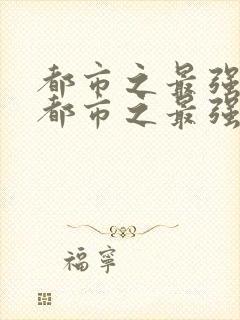 都市之最强
都市之最强
福寧